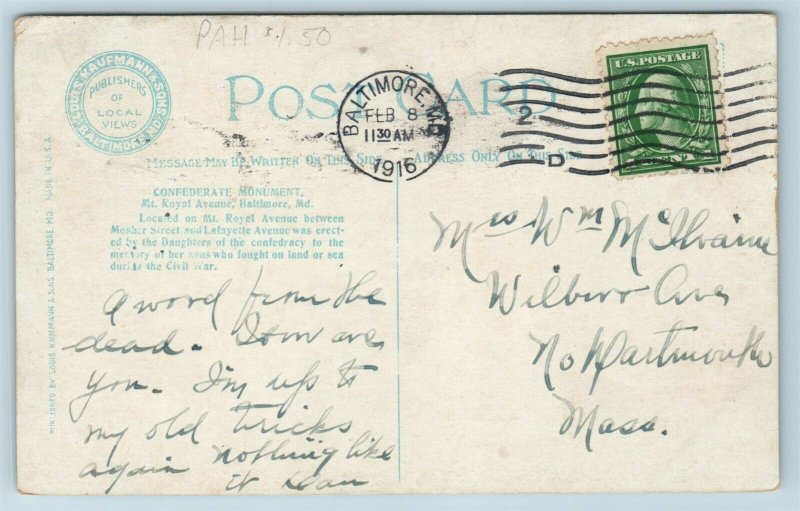 PAH $1.50
LOUIS KAUFMANN & SONS
BALTIMORE
PUBLISHERS
OF
LOCAL
VIEWS
POST CARD
BALTIMORE, MD.
FEB 8
11 30 AM
1916
2
D
U.S. POSTAGE
MESSAGE MAY BE WRITTEN ON THIS SIDE
ADDRESS ONLY ON THIS SIDE
CONFEDERATE MONUMENT,
Mt. Royal Avenue, Baltimore, Md.
Located on Mt. Royal Avenue between
Mosher Street and Lafayette Avenue was erect-
ed by the Daughters of the confedracy to the
memory of her sons who fought on land or sea
during the Civil War.
PUBLISHED BY LOUIS KAUFMANN & SONS, BALTIMORE MD. MADE IN U.S.A.
A word from the
dead. How are
you. I'm up to
my old tricks
again nothing like
it
Mrs Wm McIlvaine
Ave
No Dartmouth
Mass.